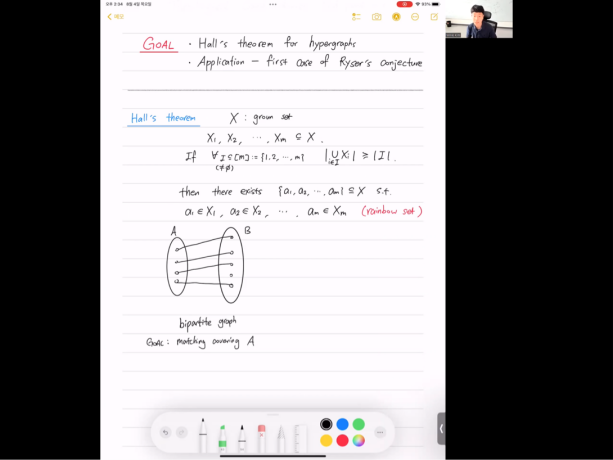 오후 2:34 8월 4일 목요일
93%
메모
GOAL · Hall's theorem for hypergraphs
· Application – first case of Ryser's conjecture
Hall's theorem X : groun set
X₁, X₂, ⋯, Xm ⊆ X.
If ∀ I ⊆ [m] := {1, 2, ⋯, m} |∪ Xi| ≥ |I|.
(≠∅) i∈I
then there exists {a₁, a₂, ⋯, am} ⊆ X s.t.
a₁ ∈ X₁, a₂ ∈ X₂, ⋯, am ∈ Xm (rainbow set)
A B
bipartite graph
GOAL : matching covering A